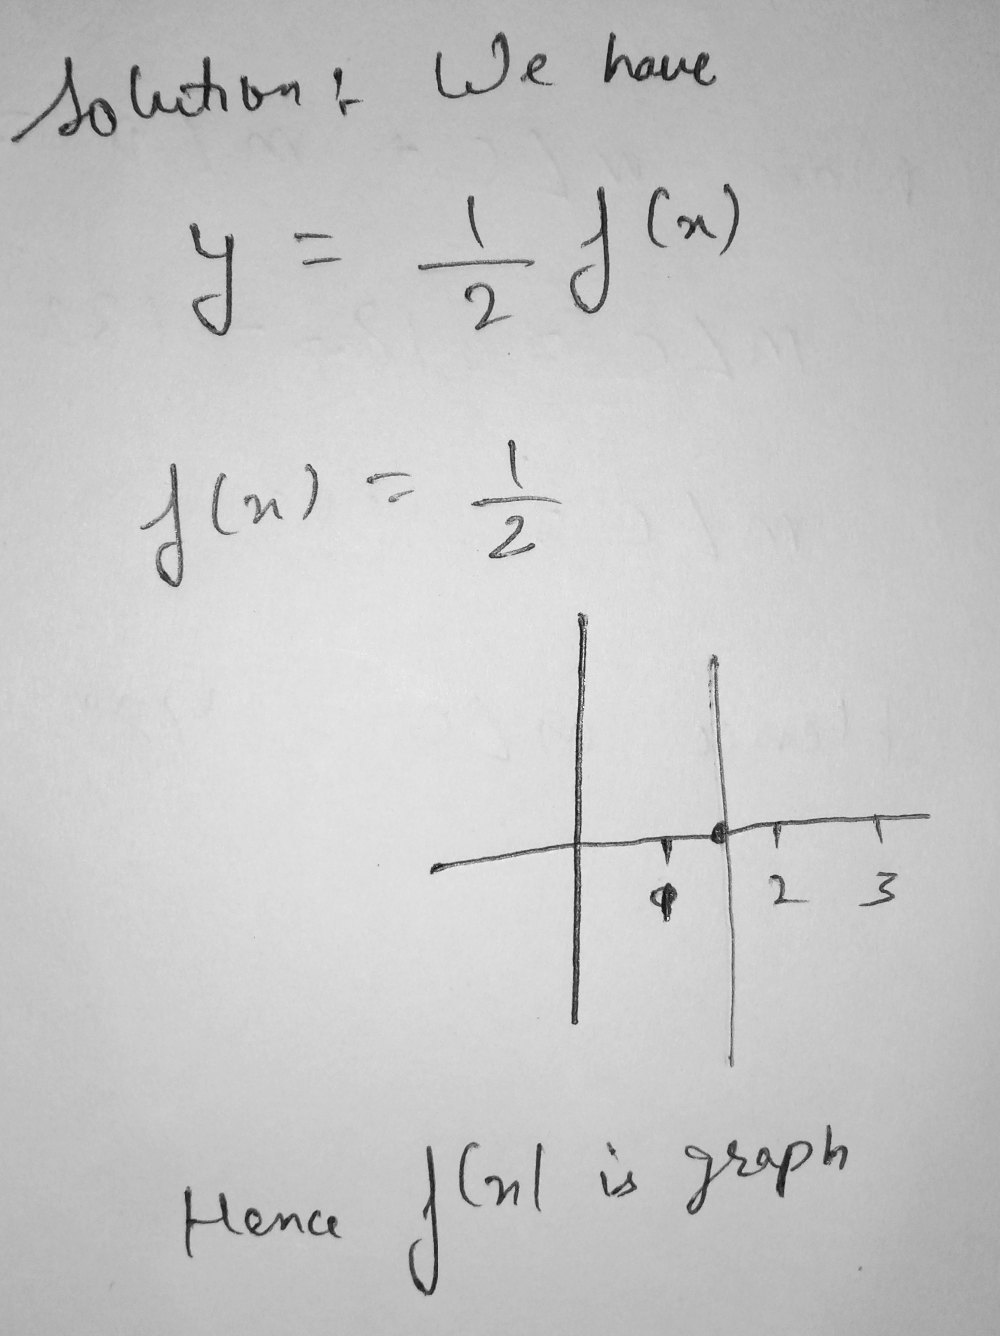 Solution: We have
y = 1/2 f(x)
f(x) = 1/2
1 2 3
Hence f(x) is graph